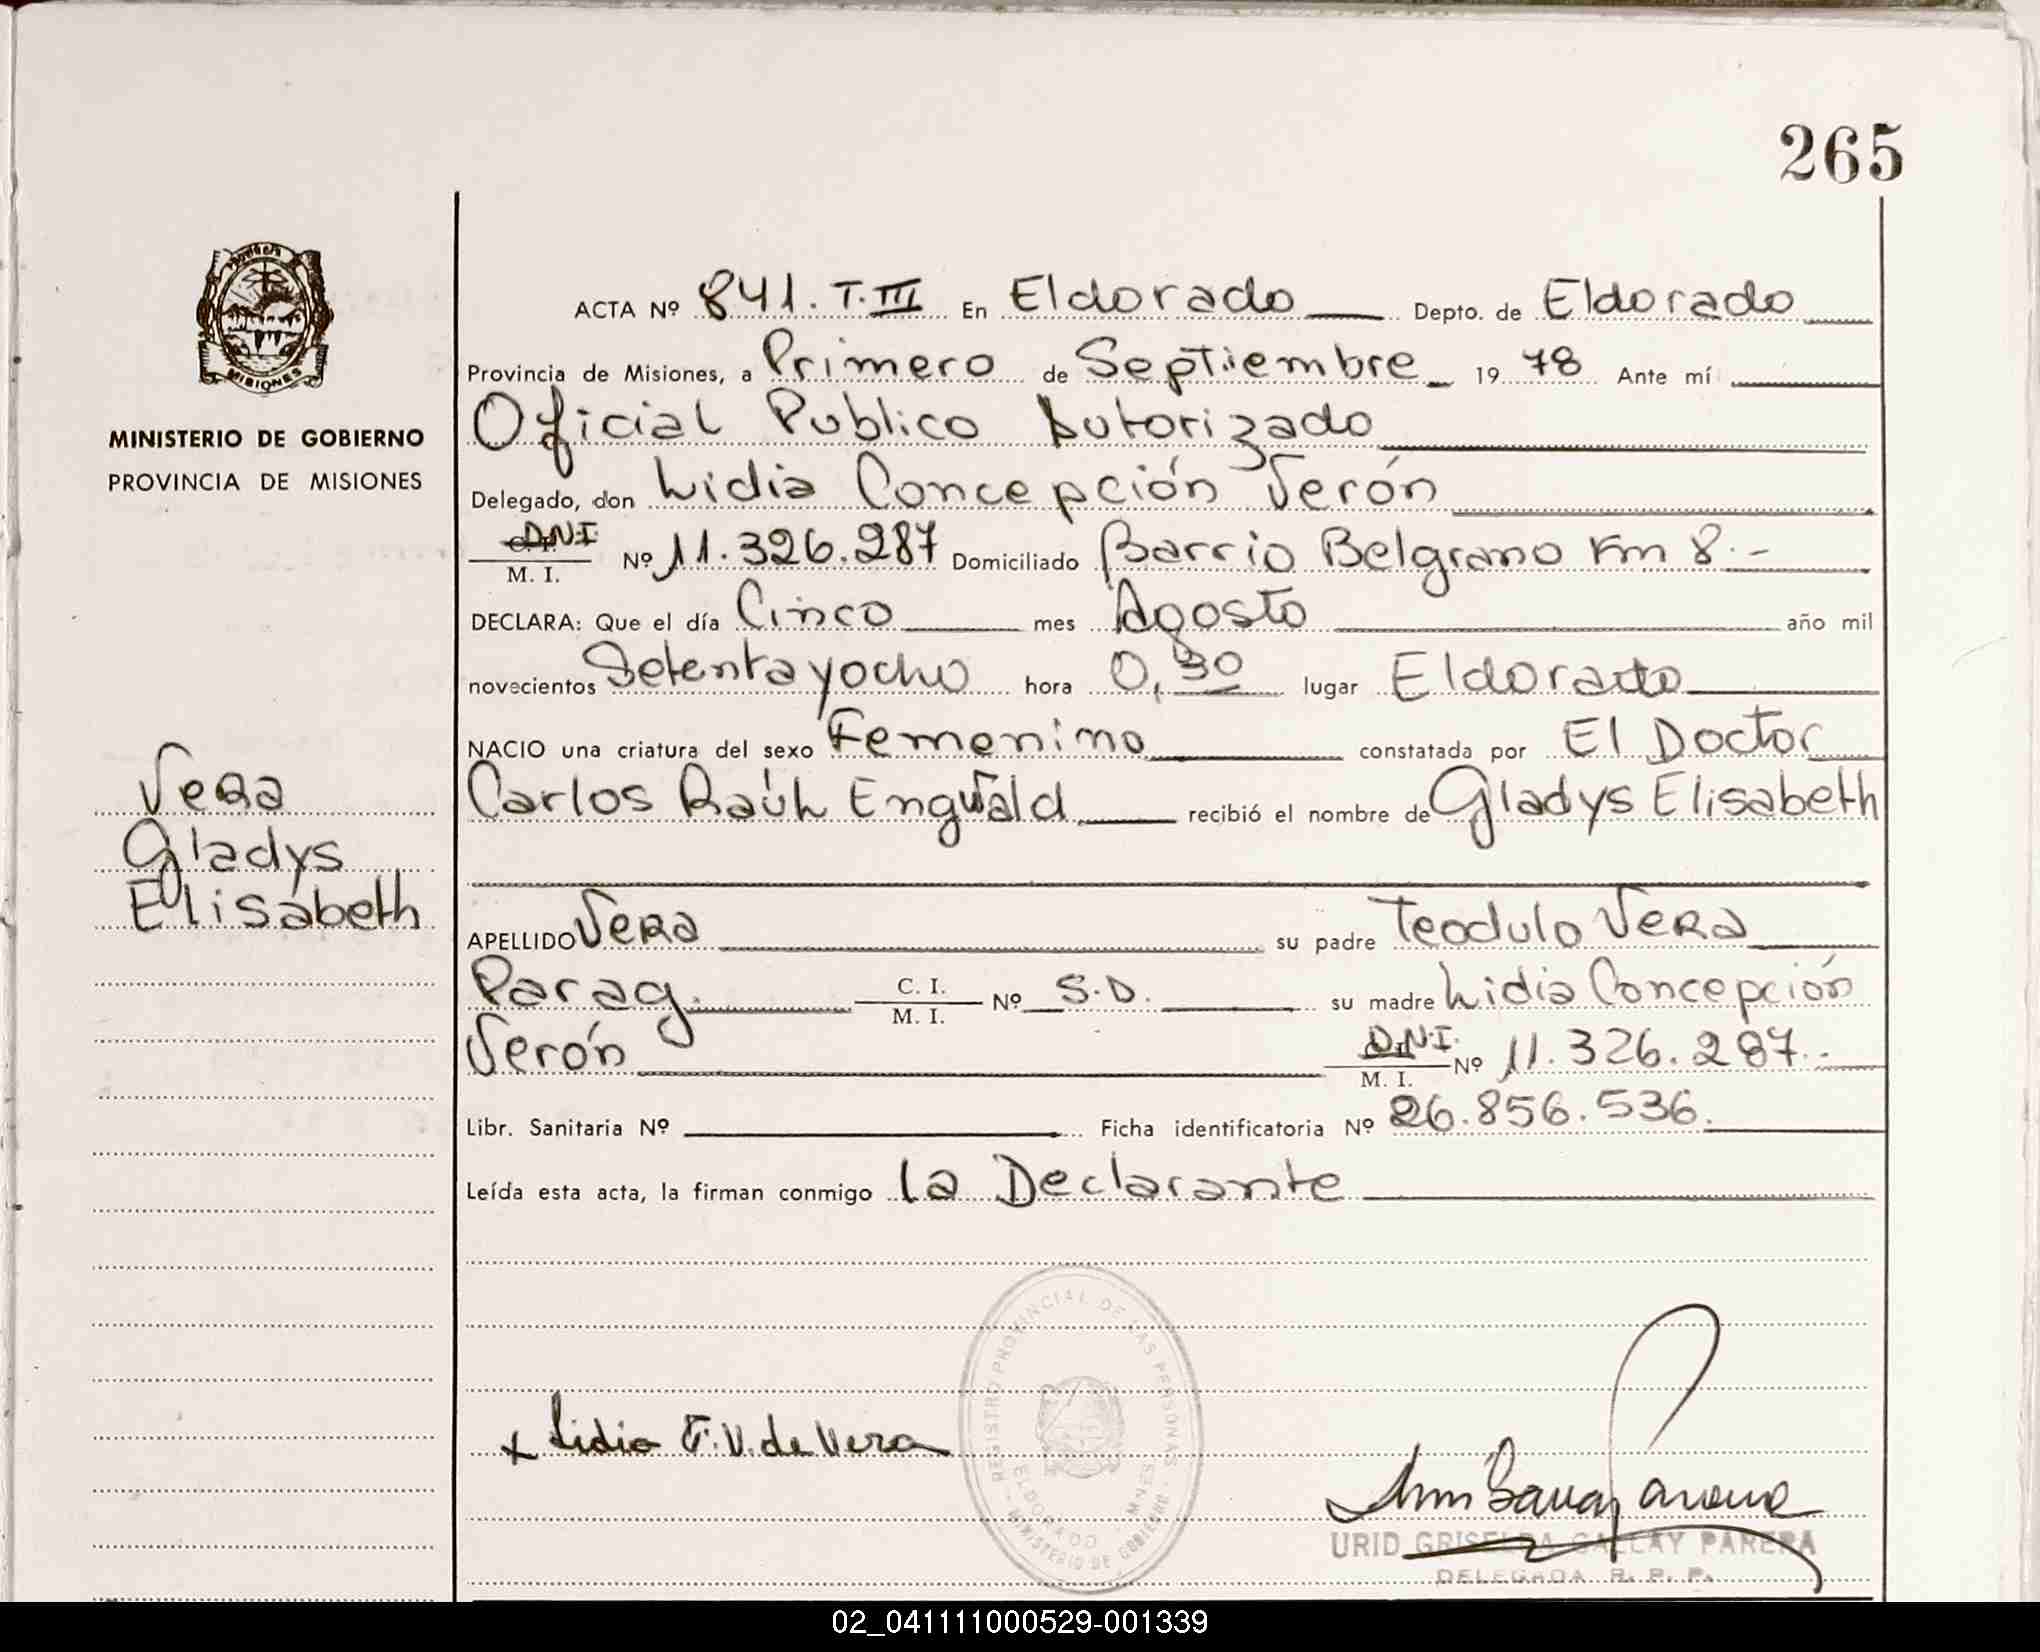 265
MISIONES
MINISTERIO DE GOBIERNO
PROVINCIA DE MISIONES
Vera
Gladys
Elisabeth
ACTA Nº 841. T.III En Eldorado Depto. de Eldorado
Provincia de Misiones, a Primero de Septiembre 19 78 Ante mí
Oficial Publico Autorizado
Delegado, don Lidia Concepción Verón
D.N.I.
M. I. Nº 11.326.287 Domiciliado Barrio Belgrano Km 8.-
DECLARA: Que el día Cinco mes Agosto año mil
novecientos Setenta y ocho hora 0,30 lugar Eldorado
NACIO una criatura del sexo Femenino constatada por El Doctor
Carlos Raúl Engwald recibió el nombre de Gladys Elisabeth
APELLIDO Vera su padre Teodulo Vera
Parag. C. I. M. I. Nº S.D. su madre Lidia Concepción
Verón D.N.I. M. I. Nº 11.326.287.-
Libr. Sanitaria Nº Ficha identificatoria Nº 26.856.536.
Leída esta acta, la firman conmigo la Declarante
REGISTRO PROVINCIAL DE LAS PERSONAS
ELDORADO - MNES
MINISTERIO DE GOBIERNO
x Lidia V. de Vera
URID GRISELDA GALLAY PARERA
DELEGADA R. P. P.
02_041111000529-001339